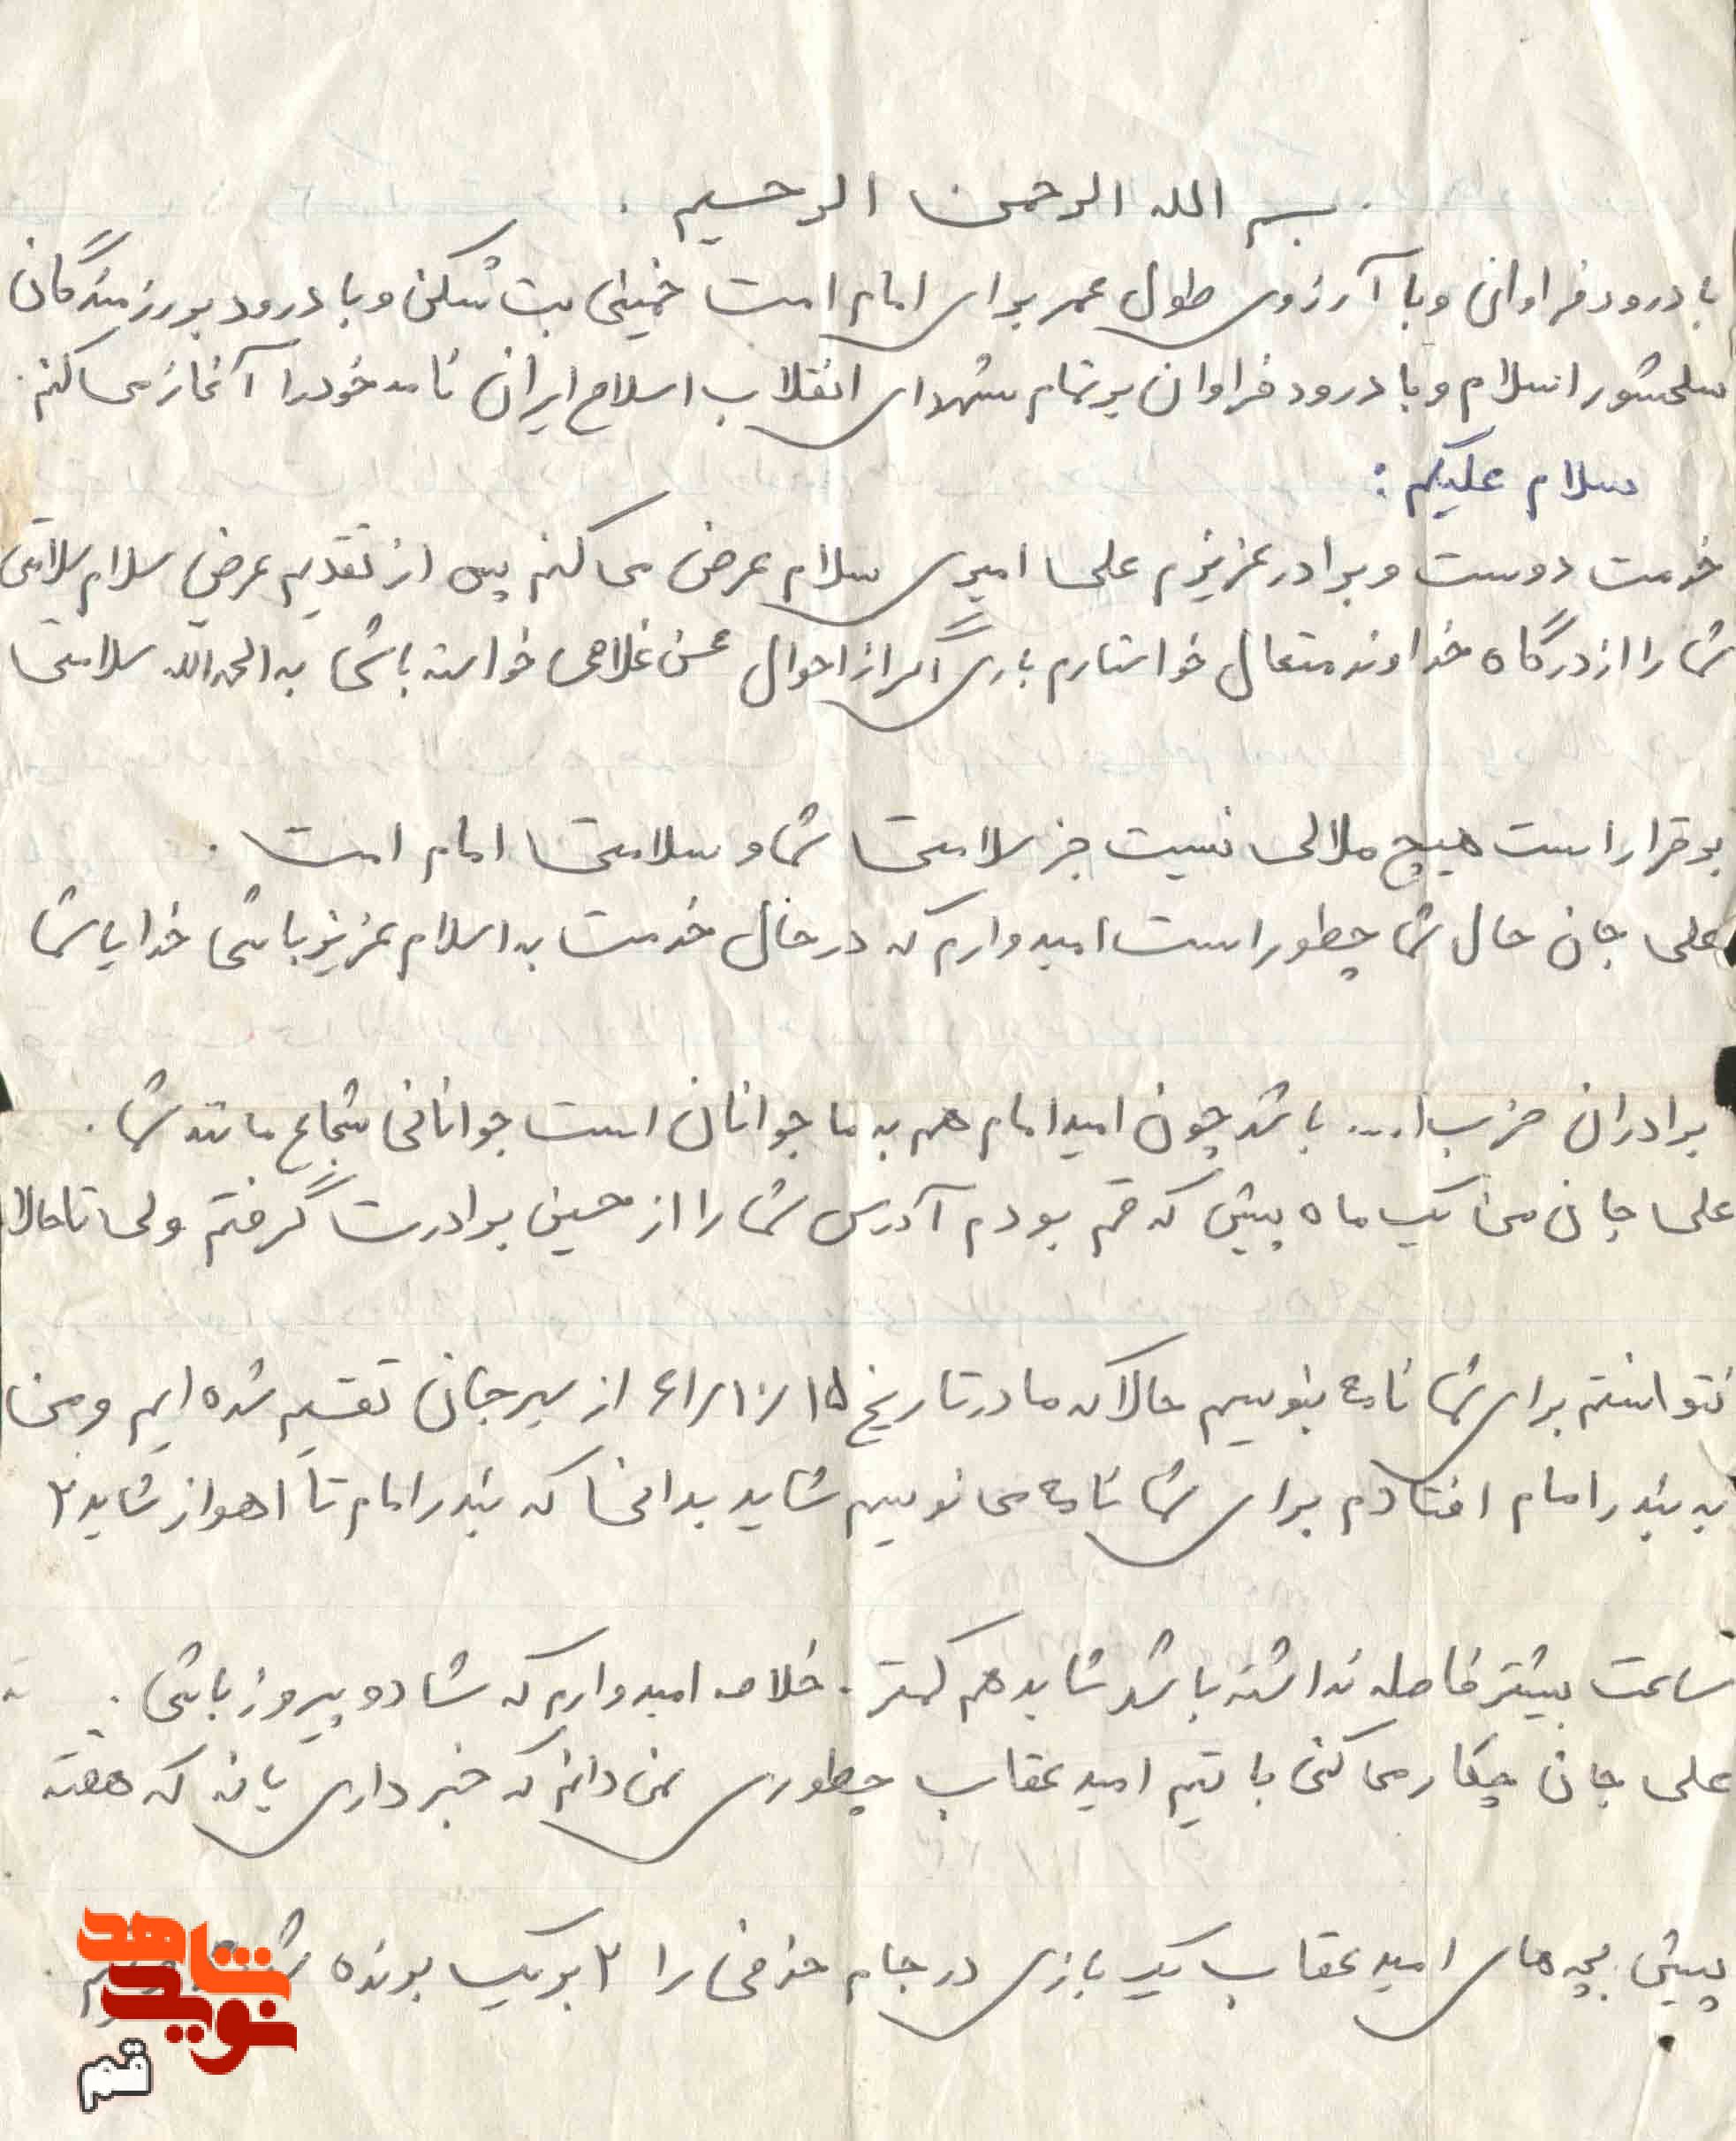 بسم الله الرحمن الرحیم .
با درود فراوان و با آرزوی طول عمر برای امام امت خمینی بت شکن و با درود بر رزمندگان
سلحشور اسلام و با درود فراوان بر تمام شهدای انقلاب اسلامی ایران نامه خود را آغاز می کنم .
سلام علیکم :
خدمت دوست و برادر عزیزم علی امیری سلام عرض می کنم پس از تقدیم عرض سلام سلامتی
شما را از درگاه خداوند متعال خواستارم باری اگر از احوال محسن غلامی خواسته باشی به الحمدالله سلامتی
برقرار است هیچ ملالی نیست جز سلامتی شما و سلامتی امام امت .
علی جان حال شما چطور است امیدوارم که در حال خدمت به اسلام عزیز باشی خدا یا شما
برادران حزب ا... باشد چون امید امام هم به ما جوانان است جوانانی شجاع مانند شما .
علی جان من یک ماه پیش که قم بودم آدرس شما را از حسین برادرت گرفتم ولی تا حالا
نتوانستم برای شما نامه بنویسم حالا که ما در تاریخ ۱۵/۱۰/۶۱ از سیرجان تقسیم شده ایم و من
به بندر امام افتادم برای شما نامه می نویسم شاید بدانی که بندر امام تا اهواز شاید ۲
ساعت بیشتر فاصله نداشته باشد شاید هم کمتر . خلاصه امیدوارم که شاد و پیروز باشی .
علی جان چکار می کنی با تیم امید عقاب چطوری نمی دانم که خبر داری یا نه که هفته
پیش بچه های امید عقاب یک بازی در جام حذفی را ۲ بر یک برنده
شاهد
نوید
قم